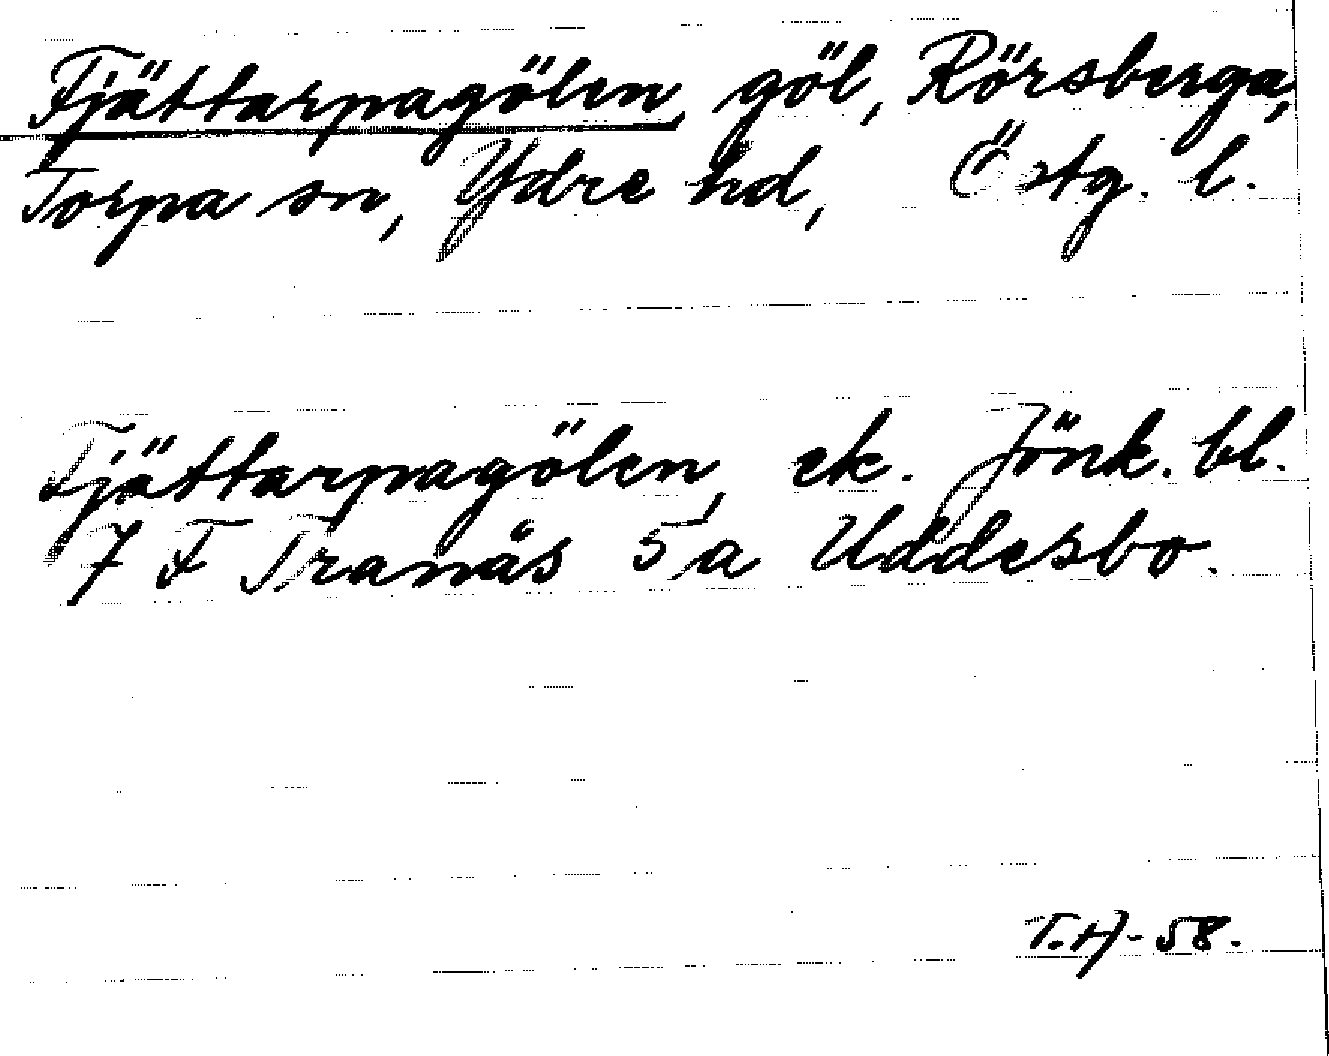 Fjättarpagölen, göl, Rörsberga,
Torpa sn, Ydre hd, Östg. l.
Fjättarpagölen, ek. Jönk. bl.
7 F Tranås 5a Uddesbo.
T.H-58.